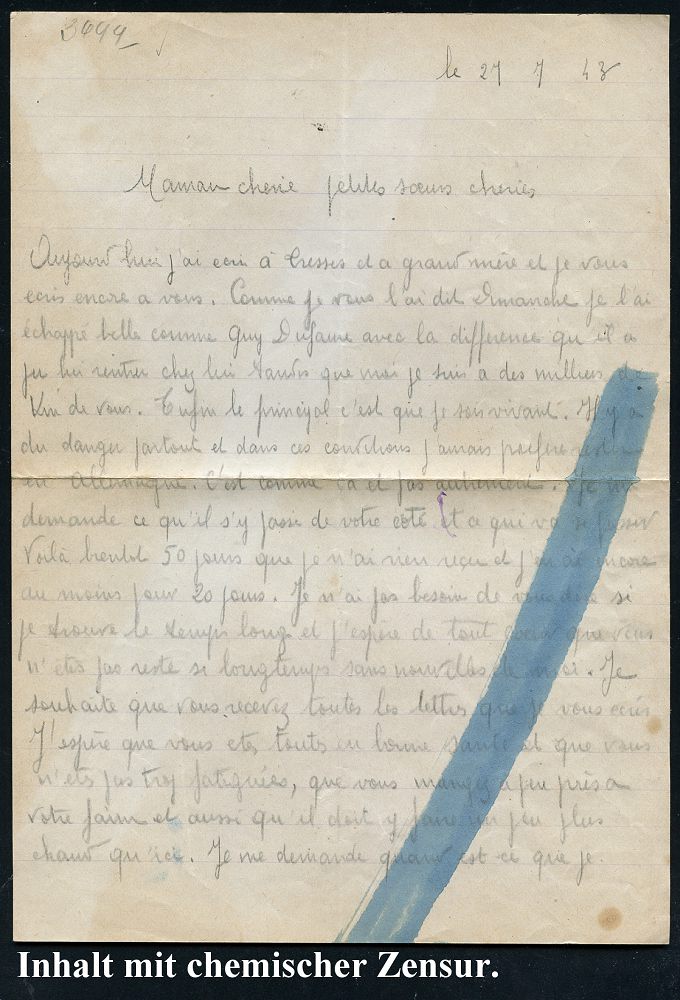 3499
le 27 7 43
Maman cherie petites sœurs cheries
Aujourd'hui j'ai ecri à et a grand mère et je vous
ecris encore a vous. Comme je vous l'ai dit Dimanche je l'ai
échappé belle comme Guy avec la difference qu'il a
pu lui rentrer chez lui tandis que moi je suis a des milliers de
Km de vous. Enfin le principal c'est que je soit vivant. Il y a
du danger partout et dans ces conditions j'amais préféré rester
en Allemagne. C'est comme ca et pas autrement. Je me
demande ce qu'il s'y passe de votre coté et a que va se passer
Voilà bientot 50 jours que je n'ai rien reçu et j'en ai encore
au moins pour 20 jours. Je n'ai pas besoin de vous dire si
je trouve le temps long et j'espère de tout coeur que vous
n'etes pas reste si longtemps sans nouvelles de moi. Je
souhaite que vous recevez toutes les lettres que je vous ecris
J'espère que vous etes toutes en bonne santé et que vous
n'etes pas trop fatiguées, que vous mangez a peu près a
votre faim et aussi qu'il doit y faire un peu plus
chaud qu'ici. Je me demande quand est ce que je
Inhalt mit chemischer Zensur.